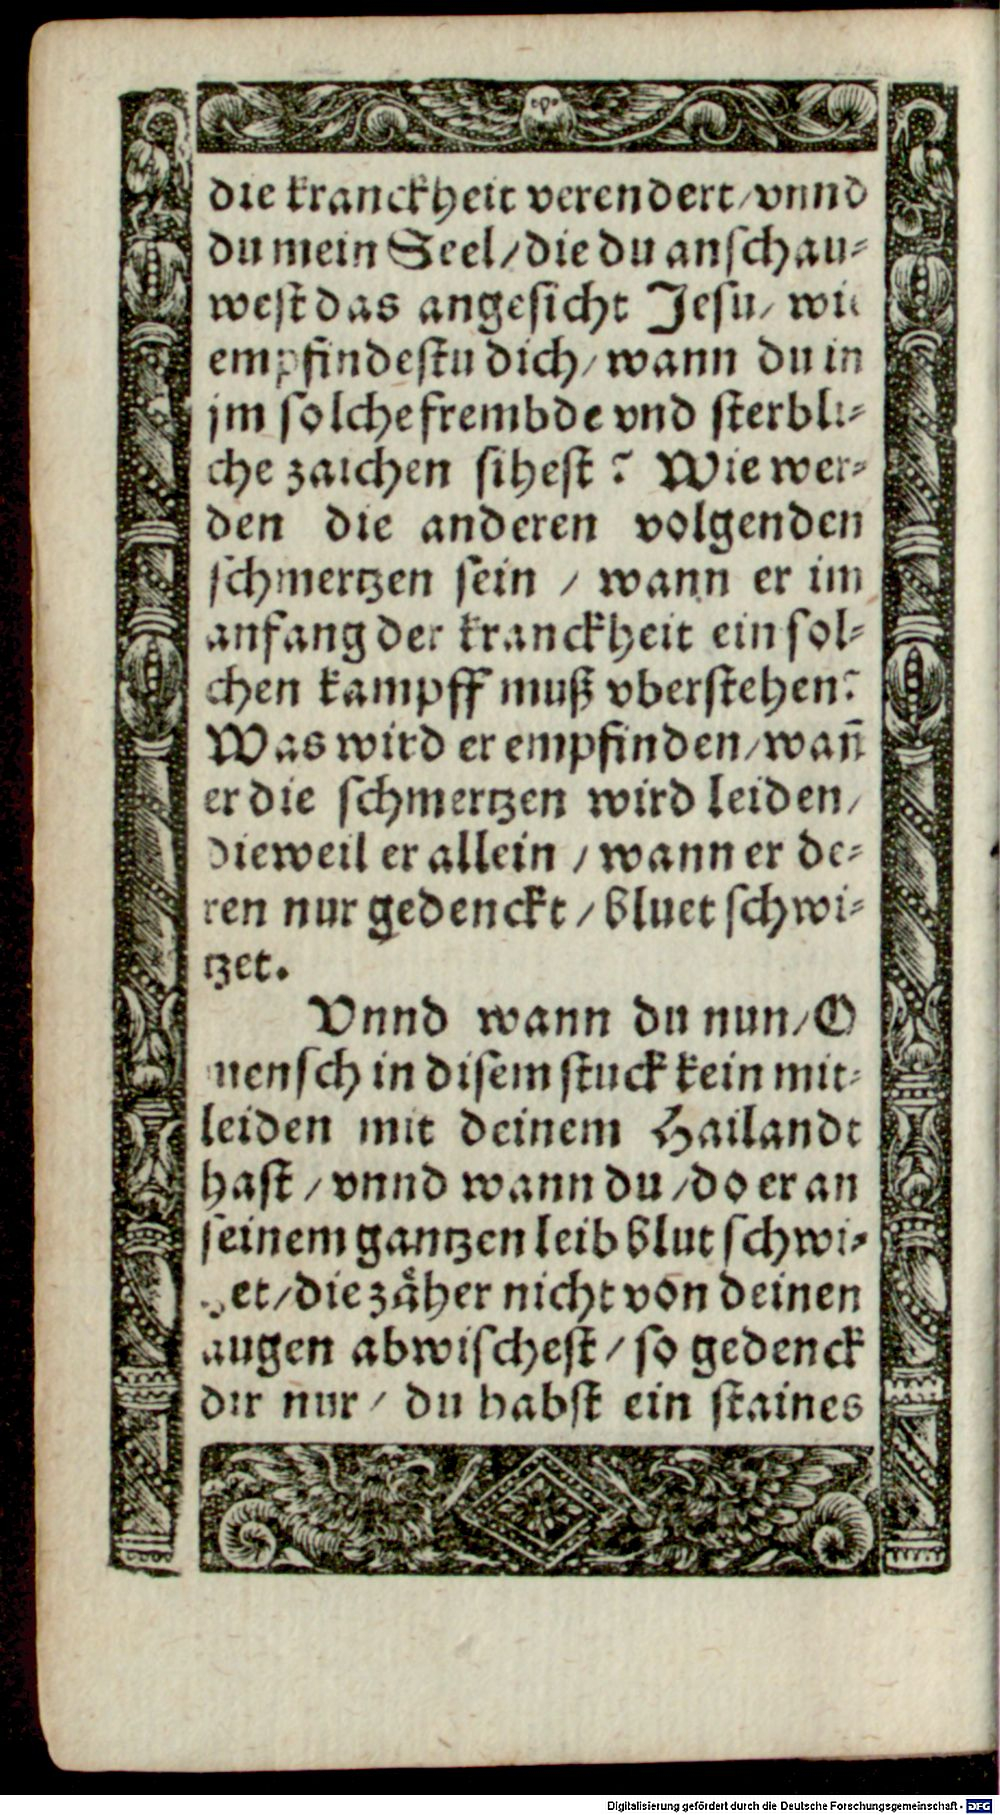 die kranckheit verendert/vnnd
du mein Seel/die du anschau⸗
west das angesicht Jesu/ wie
empfindestu dich/wann du in
jm solche frembde vnd sterbli⸗
che zaichen sihest? Wie wer⸗
den die anderen volgenden
schmertzen sein / wann er im
anfang der kranckheit ein sol⸗
chen kampff muß vberstehen?
Was wird er empfinden/wañ
er die schmertzen wird leiden/
dieweil er allein / wann er de⸗
ren nur gedenckt / bluet schwi⸗
tzet.
Vnnd wann du nun/O
mensch in disem stuck kein mit⸗
leiden mit deinem Hailandt
hast / vnnd wann du /do er an
seinem gantzen leib blut schwi⸗
tzet/die zåher nicht von deinen
augen abwischest / so gedenck
dir nur / du habst ein staines
Digitalisierung gefördert durch die Deutsche Forschungsgemeinschaft - DFG